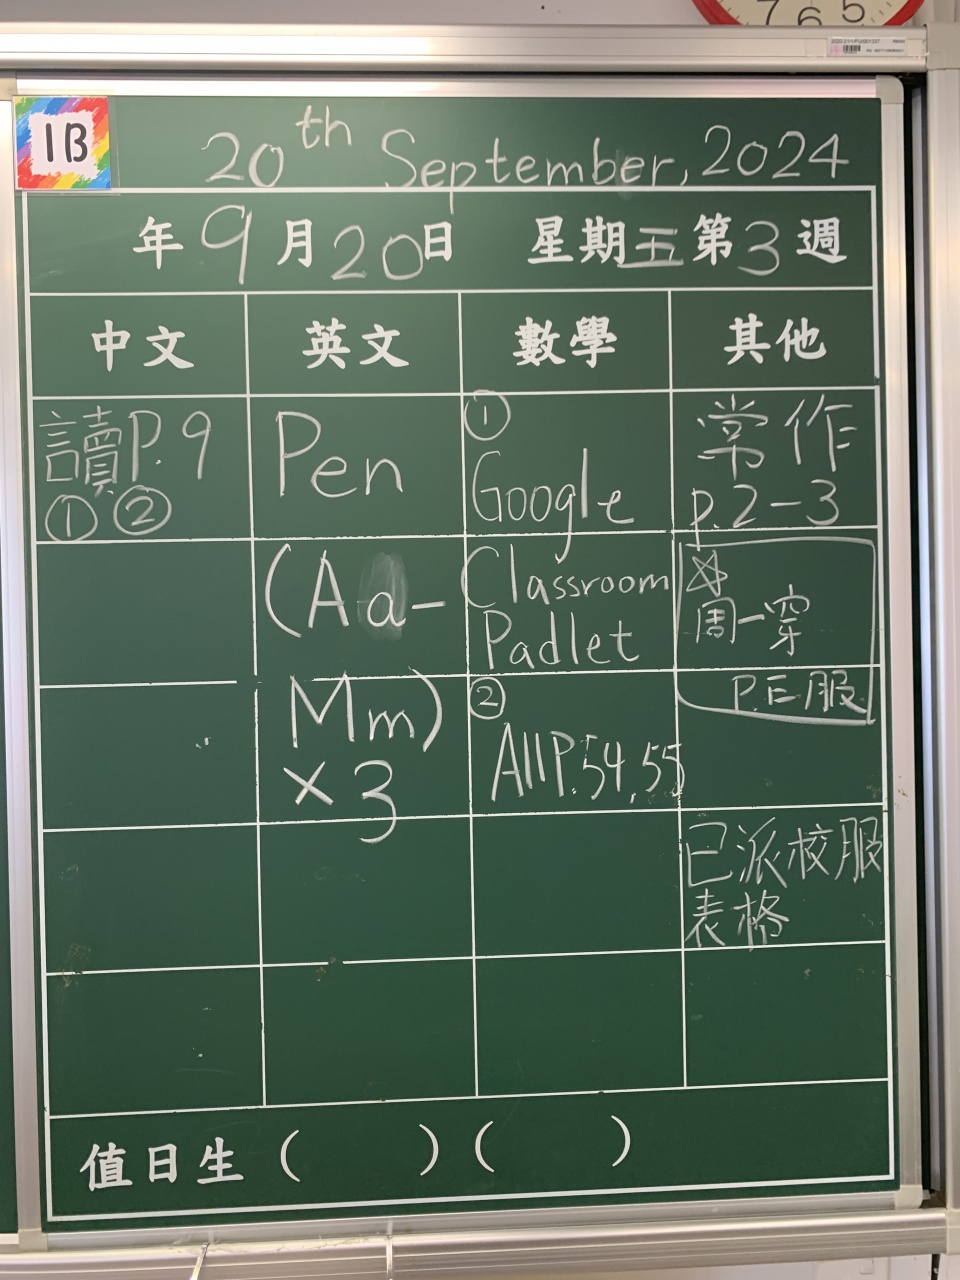 7 6 5
1B
20th September, 2024
年 9 月 20 日 星期 五 第 3 週
中文 英文 數學 其他
讀P.9
① ②
Pen
(Aa-
Mm)
× 3
①
Google
Classroom
Padlet
②
A11P.54,55
常作
p.2-3
周一穿
P.E服
已派校服
表格
值日生 ( ) ( )